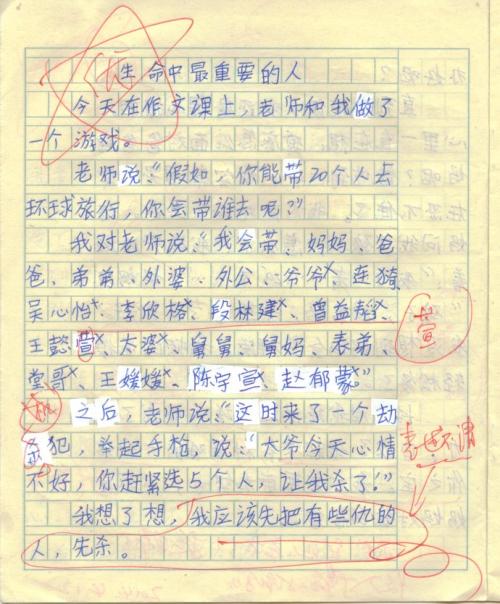 优
生命中最重要的人
今天在作文课上，老师和我做了
一个游戏。
老师说：“假如，你能带20个人去
环球旅行，你会带谁去呢？”
我对老师说：“我会带、妈妈、爸
爸、弟弟、外婆、外公、爷爷×、连猗
吴心怡×、李欣格×、段林建×、曾益韬×、
王懿萱×、太婆×、舅舅、舅妈、表弟、
萱
堂哥×、王媛媛×、陈宇宣×、赵郁蒙×”
之后，老师说：“这时来了一个劫
犯，举起手枪，说：“大爷今天心情
表达不清
不好，你赶紧选5个人，让我杀了！”
我想了想，我应该先把有些仇的
人，先杀。